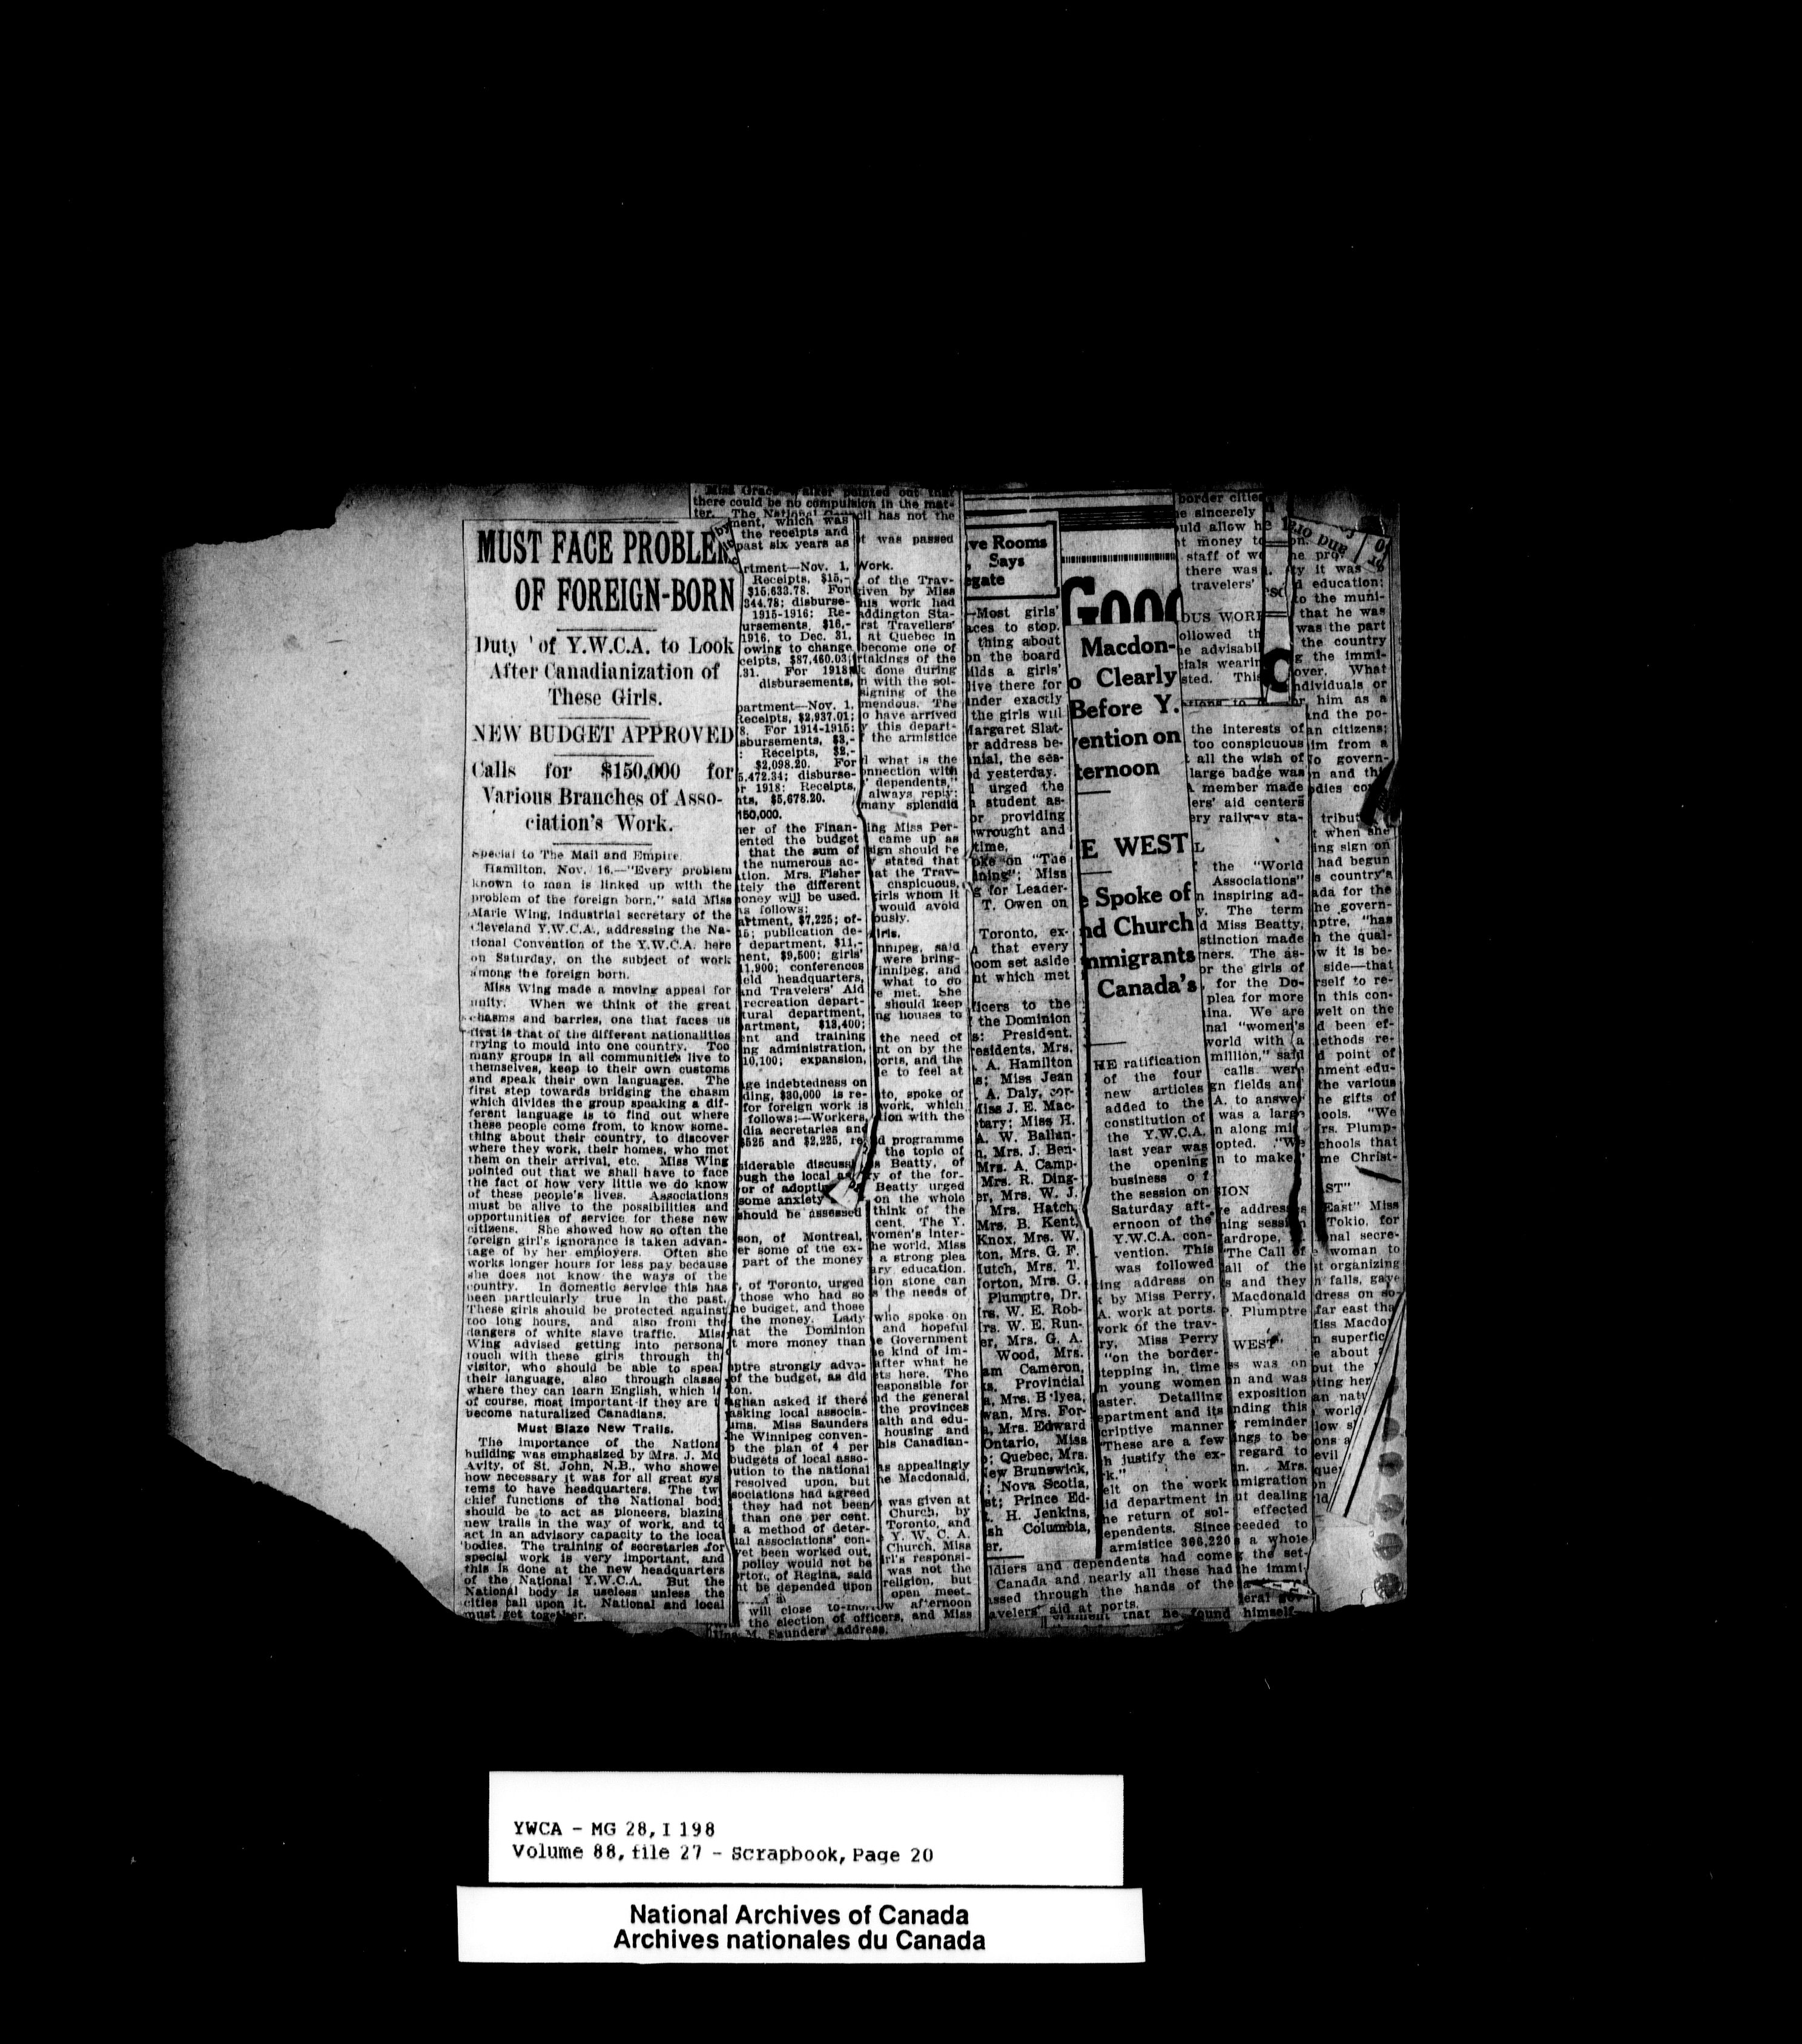 MUST FACE PROBLEM
OF FOREIGN-BORN
Duty of Y.W.C.A. to Look
After Canadianization of
These Girls.
NEW BUDGET APPROVED
Calls for $150,000 for
Various Branches of Asso-
ciation's Work.
Special to The Mail and Empire.
Hamilton, Nov. 16.—"Every problem
known to man is linked up with the
problem of the foreign born," said Miss
Marie Wing, industrial secretary of the
Cleveland Y.W.C.A., addressing the Na-
tional Convention of the Y.W.C.A. here
on Saturday, on the subject of work
among the foreign born.
Miss Wing made a moving appeal for
unity. When we think of the great
chasms and barries, one that faces us
first is that of the different nationalities
trying to mould into one country. Too
many groups in all communities live to
themselves, keep to their own customs
and speak their own languages. The
first step towards bridging the chasm
which divides the group speaking a dif-
ferent language is to find out where
these people come from, to know some-
thing about their country, to discover
where they work, their homes, who met
them on their arrival, etc. Miss Wing
pointed out that we shall have to face
the fact of how very little we do know
of these people's lives. Associations
must be alive to the possibilities and
opportunities of service for these new
citizens. She showed how so often the
foreign girl's ignorance is taken advan-
tage of by her employers. Often she
works longer hours for less pay because
she does not know the ways of the
country. In domestic service this has
been particularly true in the past.
These girls should be protected against
too long hours, and also from the
dangers of white slave traffic. Miss
Wing advised getting into persona
touch with these girls through th
visitor, who should be able to speak
their language, also through classe
where they can learn English, which i
of course, most important if they are t
become naturalized Canadians.
Must Blaze New Trails.
The importance of the Nationa
building was emphasized by Mrs. J. Mc
Avity, of St. John, N.B., who showe
how necessary it was for all great sys
tems to have headquarters. The tw
chief functions of the National body
should be to act as pioneers, blazing
new trails in the way of work, and to
act in an advisory capacity to the local
bodies. The training of secretaries for
special work is very important, and
this is done at the new headquarters
of the National Y.W.C.A. But the
National body is useless unless the
cities call upon it. National and local
must get together.
Miss Grace Walker pointed out that
there could be no compulsion in the mat-
ter. The National Council has not the
ment, which was
the receipts and
past six years as
rtment—Nov. 1,
Receipts, $15,-
$15,633.78. For
344.78; disburse-
1915-1916: Re-
ursements, $16,-
1916, to Dec. 31,
owing to change
ceipts, $87,460.03;
.31. For 1918
disbursements,
partment—Nov. 1,
Receipts, $2,937.01;
8. For 1914-1915:
sbursements, $3,-
: Receipts, $2,-
$2,098.20. For
5,472.34; disburse-
r 1918: Receipts,
nts, $5,678.20.
150,000.
ner of the Finan-
ented the budget
that the sum of
the numerous ac-
tion. Mrs. Fisher
tely the different
oney will be used.
as follows:
artment, $7,225; of-
15; publication de-
department, $11,-
nent, $9,500; girls'
11,900; conferences
eld headquarters,
and Travelers' Aid
recreation depart-
tural department,
artment, $13,400;
ent and training
ng administration,
10,100; expansion,
ge indebtedness on
ding, $30,000 is re-
for foreign work is
follows:—Workers,
dia secretaries and
$525 and $2,225, re
siderable discuss
ough the local a
or of adopti
some anxiety
should be assessed
son, of Montreal,
er some of the ex-
part of the money
, of Toronto, urged
those who had so
he budget, and those
the money. Lady
hat the Dominion
t more money than
ptre strongly adva-
of the budget, as did
ton.
aghan asked if there
asking local associa-
ums. Miss Saunders
he Winnipeg conven-
o the plan of 4 per
budgets of local asso-
ution to the national
resolved upon, but
sociations had agreed
they had not been
than one per cent.
a method of deter-
ual associations' con-
yet been worked out,
policy would not be
orton, of Regina, said
nt be depended upon
will close to-morrow afternoon
the election of officers, and Miss
Una M. Saunders' address.
t was passed
Work.
of the Trav-
given by Miss
his work had
addington Sta-
rst Travellers'
at Quebec in
become one of
rtakings of the
k done during
n with the sol-
signing of the
mendous. The
o have arrived
y this depart-
the armistice
d what is the
onnection with
' dependents,"
always reply:
many splendid
ing Miss Per-
came up as
sign should be
y stated that
hat the Trav-
cnspicuous,
girls whom it
would avoid
ously.
Girls.
nnipeg, said
were bring-
innipeg, and
what to do
e met. She
should keep
ng houses to
the need of
nt on by the
ports, and the
e to feel at
to, spoke of
work, which
tion with the
d programme
the topic of
s Beatty, of
y of the for-
Beatty urged
on the whole
think of the
cent. The Y.
women's inter-
he world. Miss
a strong plea
ary education.
ion stone can
s the needs of
who spoke on
and hopeful
e Government
e kind of im-
after what he
ts here. The
esponsible for
nd the general
the provinces
alth and edu-
housing and
his Canadian-
as appealingly
he Macdonald,
was given at
Church, by
Toronto, and
Y. W. C. A.
Church, Miss
irl's responsi-
was not the
religion, but
open meet-
ve Rooms
, Says
egate
—Most girls'
aces to stop.
thing about
on the board
ilds a girls'
live there for
under exactly
the girls will
Margaret Slat-
er address be-
nnial, the ses-
d yesterday.
d urged the
a student as-
or providing
wrought and
time.
oke on "The
ining"; Miss
g for Leader-
T. Owen on
Toronto, ex-
d that every
oom set aside
nt which met
ficers to the
the Dominion
s: President,
residents, Mrs.
. A. Hamilton
s; Miss Jean
. A. Daly, cor-
Miss J. E. Mac-
tary; Miss H.
A. W. Ballan-
n, Mrs. J. Ben-
Mrs. A. Camp-
Mrs. R. Ding-
er, Mrs. W. J.
Mrs. Hatch,
Mrs. B. Kent,
Knox, Mrs. W.
ton, Mrs. G. F.
Hutch, Mrs. T.
orton, Mrs. G.
Plumptre, Dr.
rs. W. E. Rob-
rs. W. E. Run-
er, Mrs. G. A.
Wood, Mrs.
am Cameron,
ts. Provincial
a, Mrs. B lyea,
wan, Mrs. For-
a, Mrs. Edward
Ontario, Miss
; Quebec, Mrs.
New Brunswick,
; Nova Scotia,
st; Prince Ed-
. H. Jenkins,
sh Columbia,
er.
Good
Macdon-
o Clearly
Before Y.
vention on
ternoon
E WEST
e Spoke of
nd Church
mmigrants
Canada's
HE ratification
of the four
new articles
added to the
constitution of
the Y.W.C.A.
last year was
the opening
business of
the session on
Saturday aft-
ernoon of the
Y.W.C.A. con-
vention. This
was followed
ing address on
k by Miss Perry,
A. work at ports.
work of the trav-
ry, Miss Perry
"on the border-
tepping in, time
n young women
aster. Detailing
epartment and its
criptive manner
"These are a few
h justify the ex-
k."
elt on the work
id department in
he return of sol-
ependents. Since
armistice 366,220
ldiers and dependents had come
Canada and nearly all these had
ssed through the hands of the
avelers' aid at ports.
border cities
e sincerely
uld allow he
t money to
staff of wo
there was
travelers'
OUS WOR
ollowed th
e advisabil
ials wearin
sted. This
the interests of
too conspicuous
t all the wish of
large badge was
A member made
ers' aid centers
ery railway sta-
L
the "World
Associations"
n inspiring ad-
y. The term
d Miss Beatty,
stinction made
ners. The as-
or the girls of
, for the Do-
plea for more
ina. We are
nal "women's
world with a
million," said
calls were
gn fields and
A. to answer
was a large
n along mi
opted. "We
n to make
SION
ve addresses
ning session
ardrope,
"The Call of
all of the
s and they
Macdonald
P. Plumptre
WEST"
ss was on
n and was
exposition
nding this
r reminder
ings to be
regard to
n. Mrs.
mmigration
ut dealing
effected
ceeded to
s a whole
the set-
the immi-
eral gov-
ernment that he found himself
on.
he pro
ty it was
d education;
to the muni-
that he was
was the part
the country
g the immi-
over. What
ndividuals or
r him as a
and the po-
an citizens;
im from a
o govern-
n and th
odies co
tribut
t when she
ing sign on
had begun
s country's
ada for the
he govern-
mptre, "has
h the qual-
w it is be-
side—that
rself to re-
n this con-
welt on the
d been ef-
methods re-
d point of
nment edu-
the various
he gifts of
ools. "We
rs. Plump-
chools that
me Christ-
AST"
East" Miss
Tokio, for
nal secre-
woman to
t organizing
n falls, gave
dress on so-
far east tha
Miss Macdo
n superfic
e about
out the
ting her
an natu
world
low s
ons a
evil
que
on
ld
YWCA - MG 28, I 198
Volume 88, file 27 - Scrapbook, Page 20
National Archives of Canada
Archives nationales du Canada